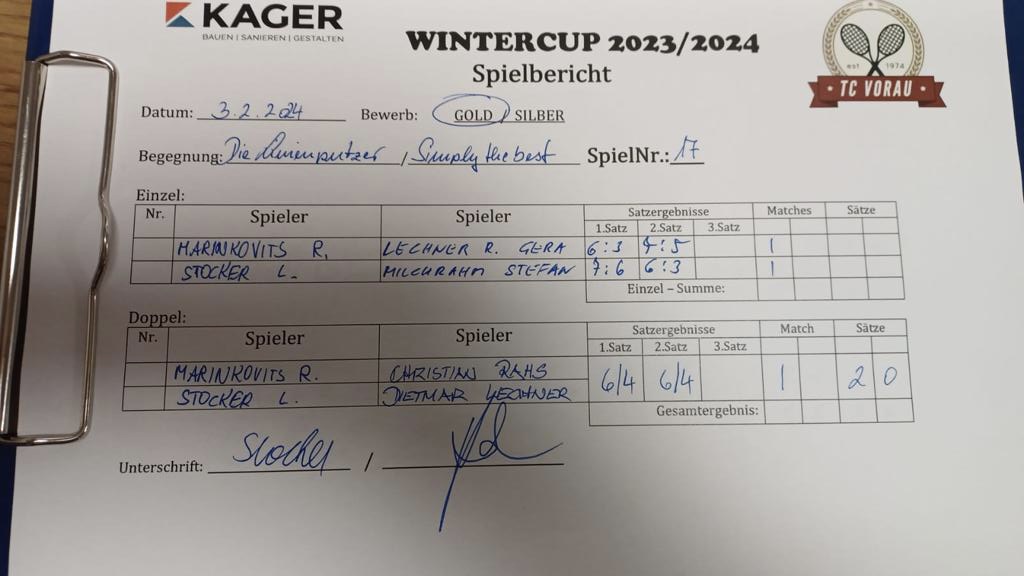 KAGER
BAUEN | SANIEREN | GESTALTEN
WINTERCUP 2023/2024
Spielbericht
est 1974
TC VORAU
Datum: 3.2.2024 Bewerb: GOLD / SILBER
Begegnung: Die Linienputzer / Simply the best SpielNr.: 17
Einzel:
Nr. Spieler Spieler Satzergebnisse Matches Sätze
1.Satz 2.Satz 3.Satz
MARINKOVITS R. LECHNER R. GERA 6:3 7:5 1
STOCKER L. MILCHRAHM STEFAN 7:6 6:3 1
Einzel – Summe:
Doppel:
Nr. Spieler Spieler Satzergebnisse Match Sätze
1.Satz 2.Satz 3.Satz
MARINKOVITS R. CHRISTIAN RAHS 6/4 6/4 1 2 0
STOCKER L. DIETMAR LECHNER
Gesamtergebnis:
Unterschrift: Stocker /